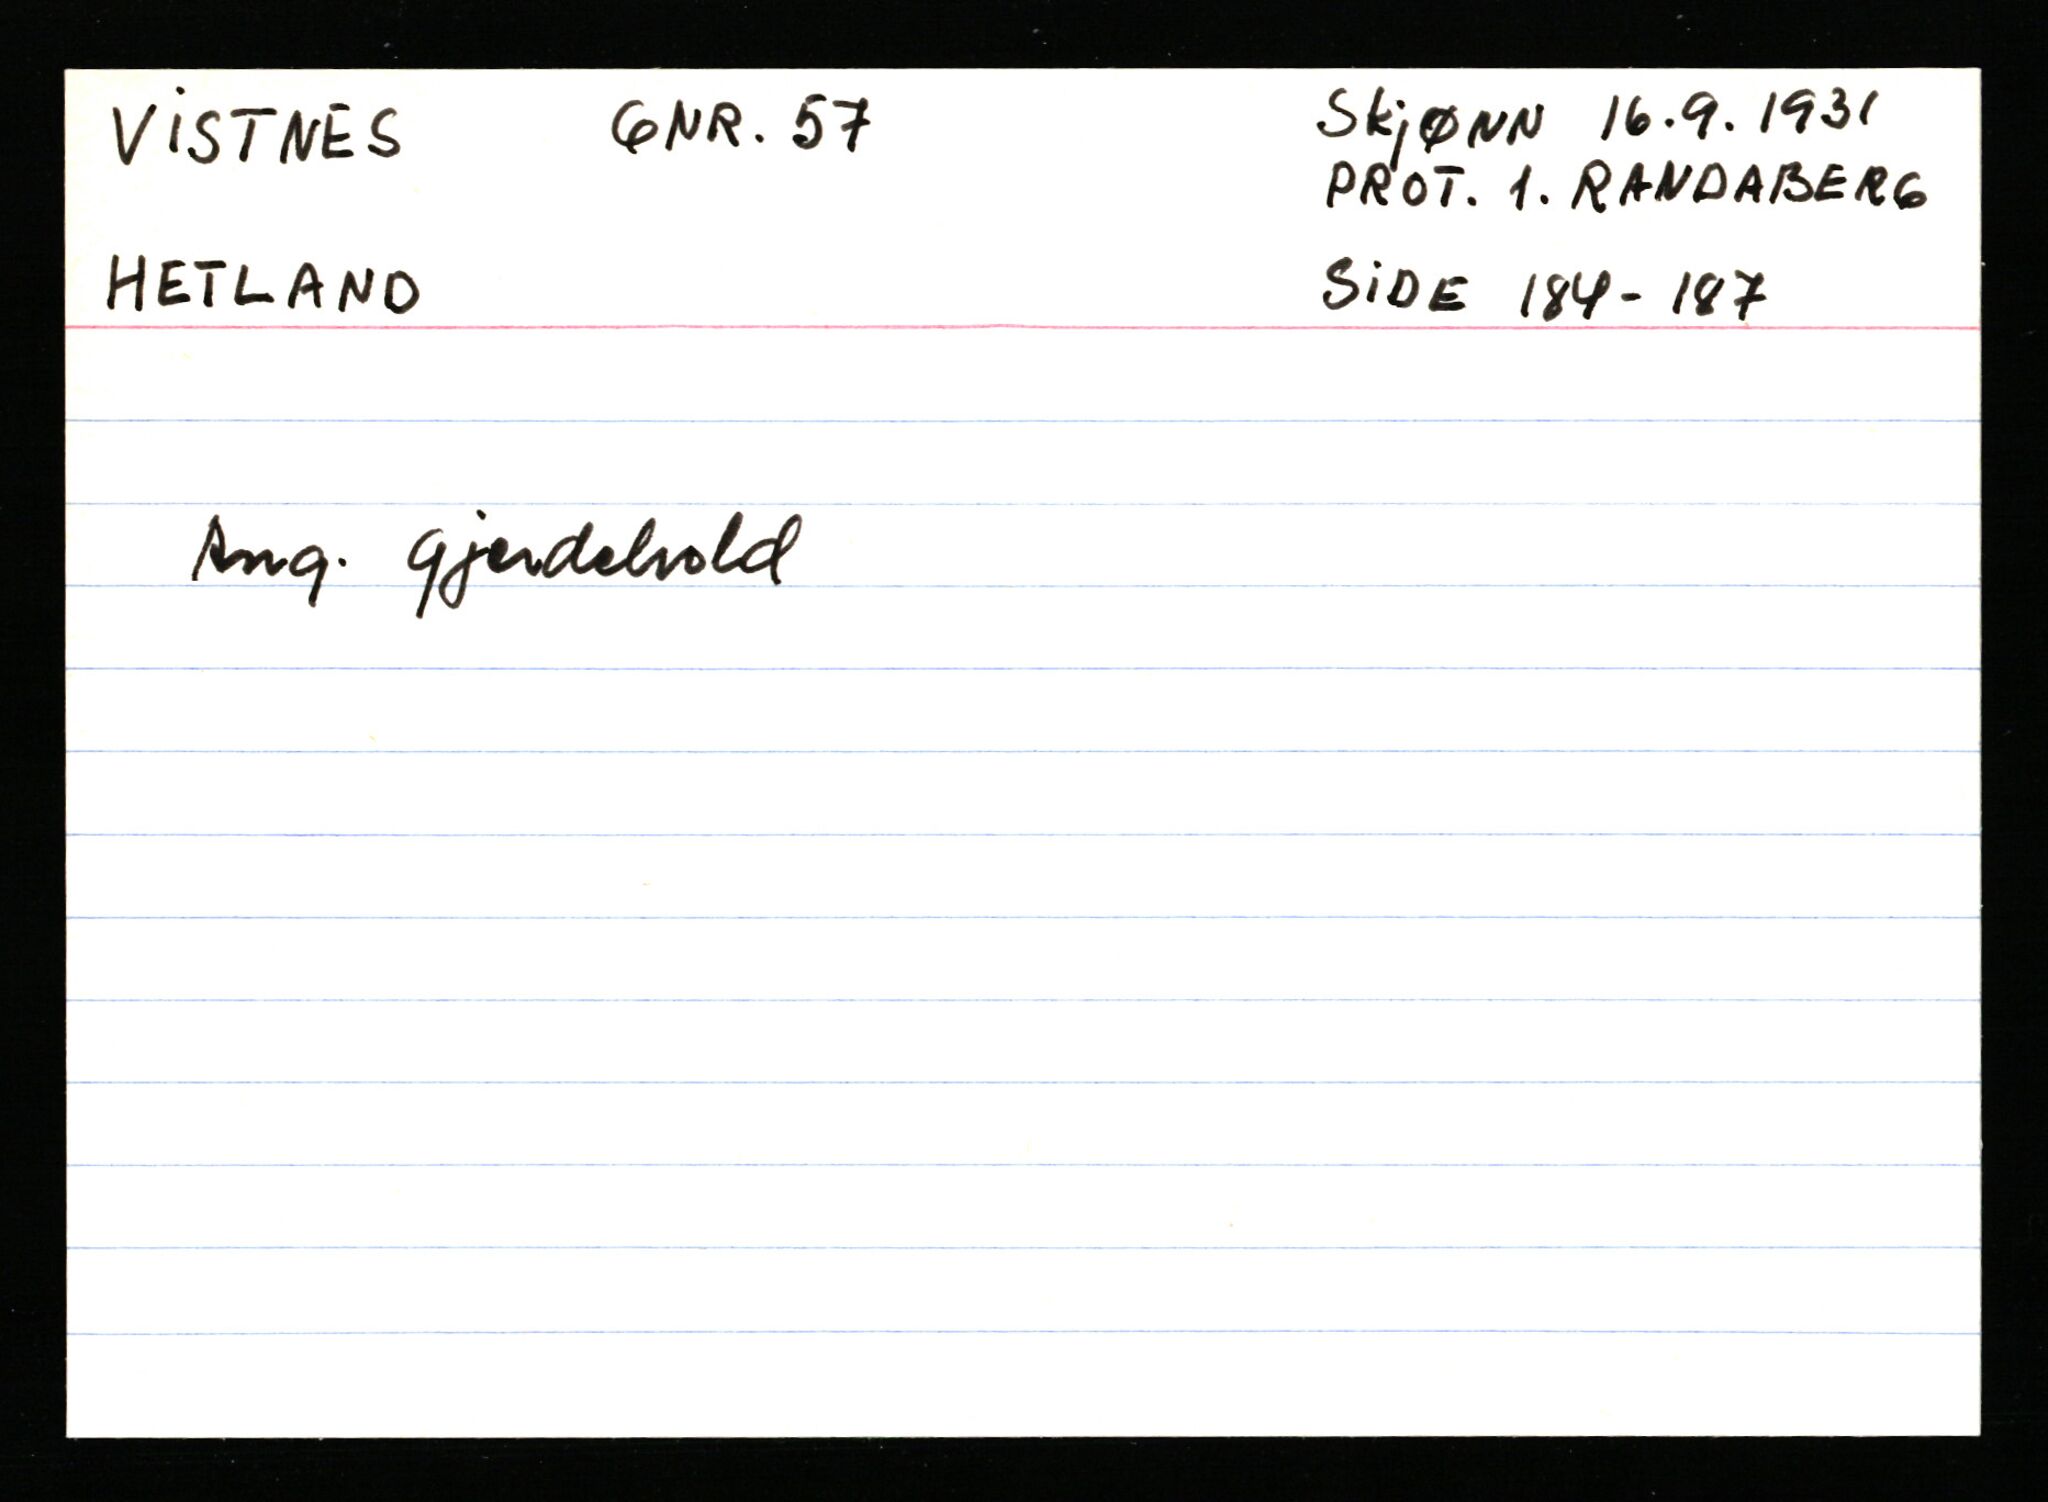 VISTNES GNR. 57 Skjønn 16.9.1931
PROT. 1. RANDABERG
HETLAND SIDE 184-187
Ang. Gjerdehold